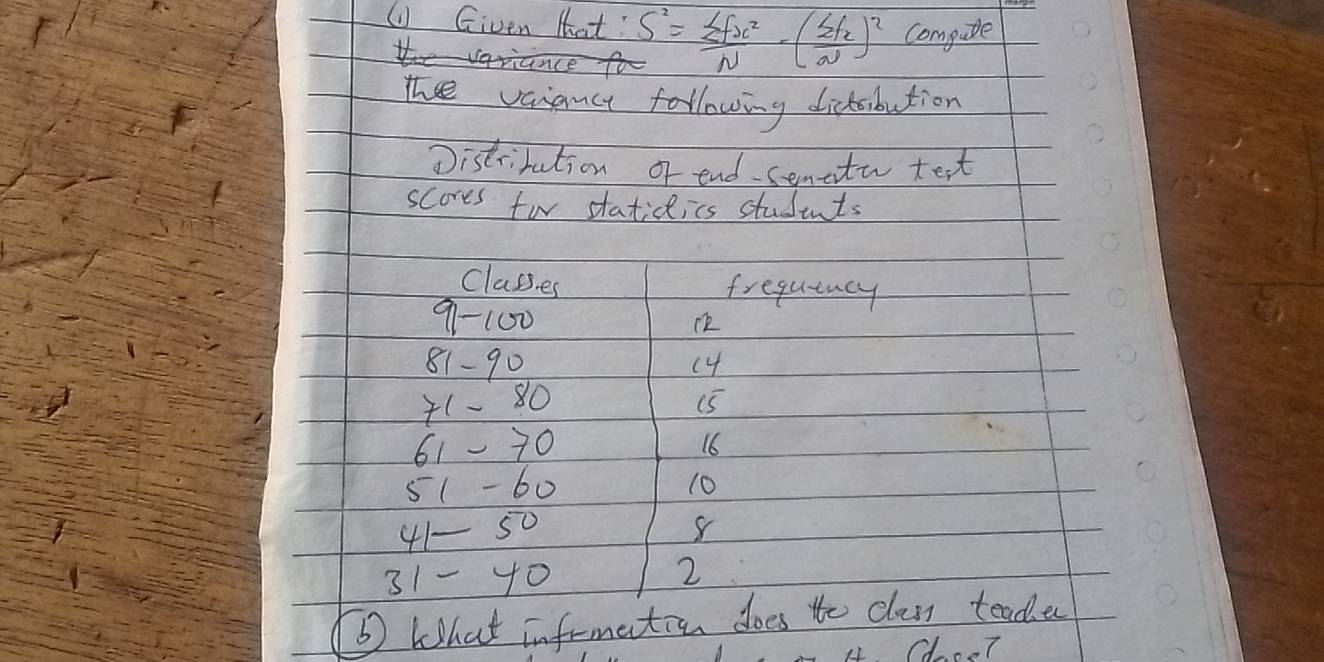 (1) Given that: S² = Σfx²/N - (Σfx/N)² Compute
the variance for
the variancy following distribution
Distribution of end-semester test
scores for statidics students
Classes frequency
91-100 12
81-90 14
71-80 15
61-70 16
51-60 10
41-50 8
31-40 2
(b) What information does the class teacher
class?